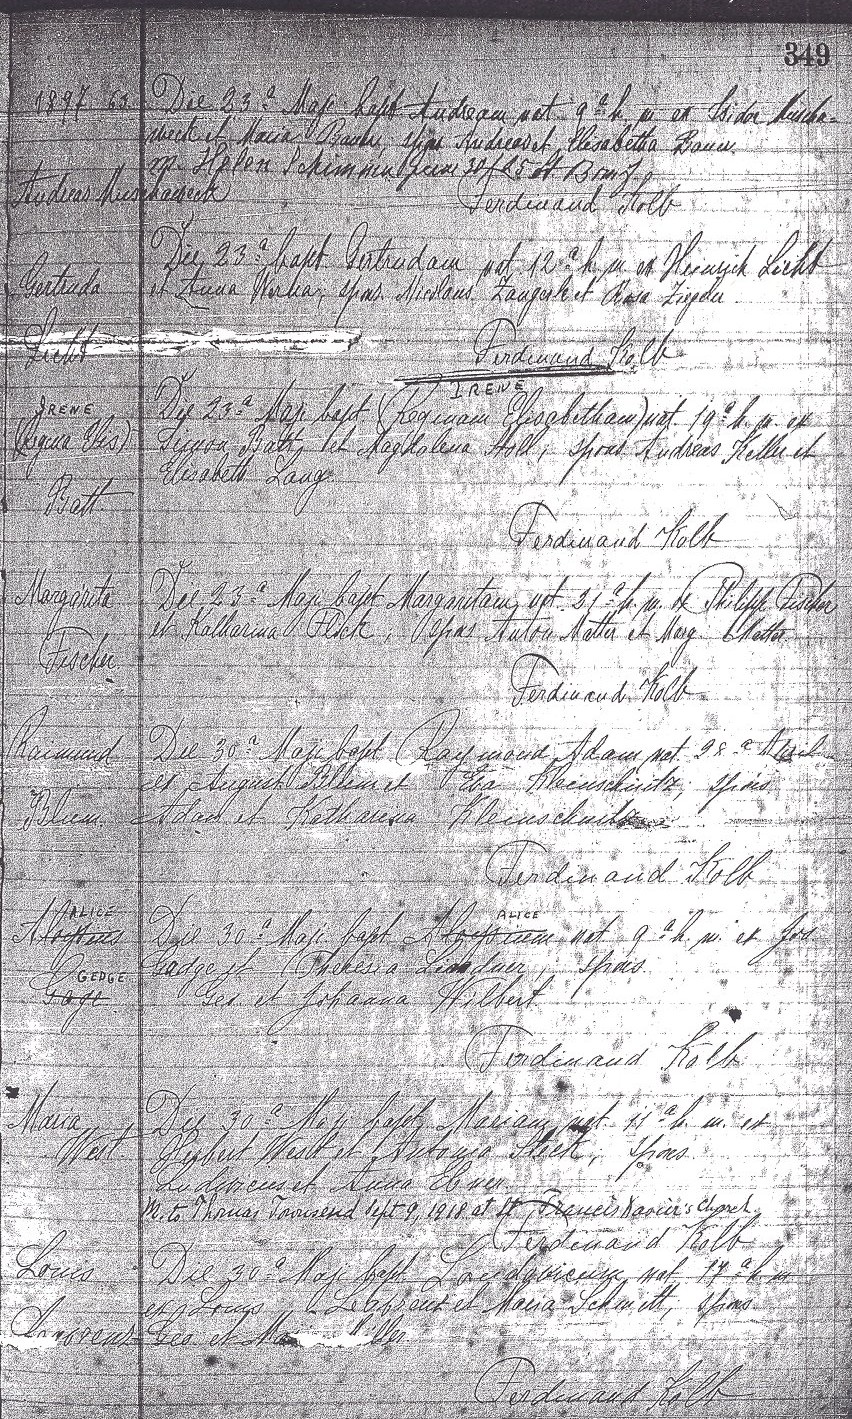 349
1897 Die 23ª Maji bapt Andream nat 9ª h. m. ex Isidor Muscha=
weck et Maria Bauer, spons Andreas et Elisabetha Bauer.
m. Helen Schimmel June 30/25 at
Andreas Muschaweck Ferdinand Kolb
Gertruda Die 23ª bapt Gertrudam nat 12ª h. m. ex Heinrich Licht
et Anna spons. Nicolaus et Rosa Ziegler
Licht Ferdinand Kolb
IRENE
IRENE Die 23ª Maji bapt (Reginam Elisabetham) nat. 19ª h. m. ex
(Regina Elis) Simon Batt, et Magdalena Holl, spons Andreas Keller et
Elisabeth Lang
Batt
Ferdinand Kolb
Margarita Die 23ª Maji bapt Margaritam, nat. 21ª h. m. ex Philipp Fischer
et Katharina Flick, spons Anton Matter et Marg. Matter
Fischer
Ferdinand Kolb
Raimund Die 30ª Maji bapt Raymond Adam nat. 28ª April
ex August Blum et Eva Kleinschnitz, spons
Blum Adam et Katharina Kleinschnitz
Ferdinand Kolb
ALICE ALICE
Aloysius Die 30ª Maji bapt Aloysium nat 9ª h. m. ex Jos.
Gadge et Theresia Lindner, spons.
GEDGE
Gage Geo. et Johanna Wilbert
Ferdinand Kolb
Maria Die 30ª Maji bapt Mariam nat. 11ª h. m. ex
West Hubert West et Antonia Steck, spons.
Ludovicus et Anna Ebner.
M. to Thomas Townsend Sept 9, 1918 at St. Francis Xavier's Church.
Ferdinand Kolb
Louis Die 30ª Maji bapt Ludovicum nat 17ª h. m.
ex Louis et Maria Schmitt, spons
Geo et Miller.
Ferdinand Kolb